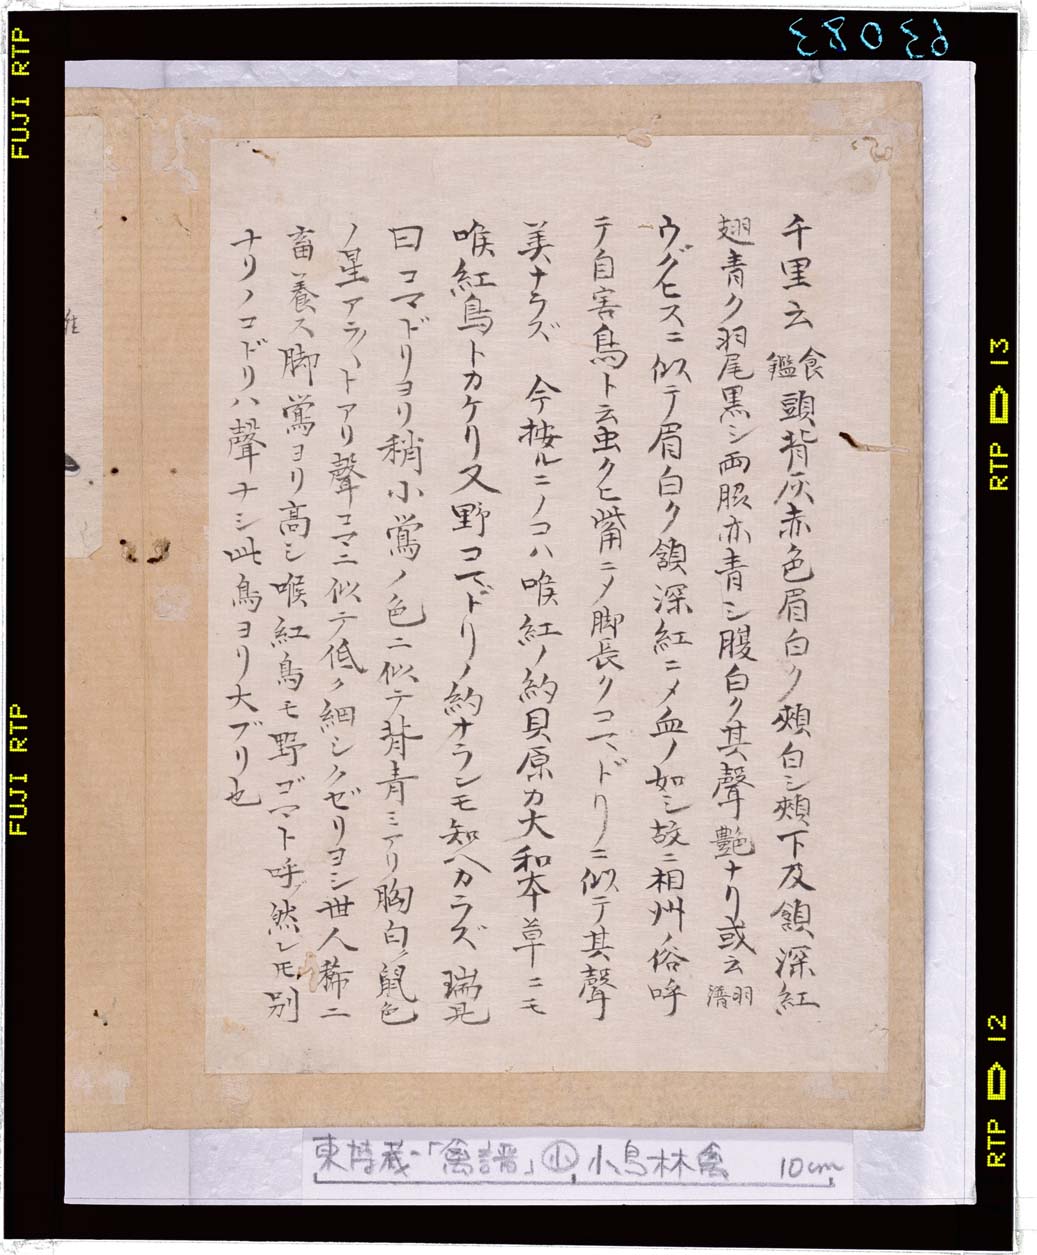 千里云 食鑑 頭背灰赤色眉白ク頰白シ頰下及頷深紅
翅青ク羽尾黒シ両脇亦青シ腹白ク其聲艶ナリ或云 羽譜
ウグヒスニ似テ眉白ク頷深紅ニメ血ノ如シ故ニ相州ノ俗呼
テ自害鳥ト云虫クヒ觜ニメ脚長クコマドリニ似テ其聲
美ナラズ 今按ルニノコハ喉紅ノ約貝原カ大和本草ニモ
喉紅鳥トカケリ又野コマドリノ約ナランモ知ヘカラズ 瑞見
曰コマドリヨリ稍小鶯ノ色ニ似テ背青ミアリ胸白ク鼠色
ノ星アラ〱トアリ聲コマニ似テ低ク細シクゼリヨシ世人稀ニ
畜養ス脚鶯ヨリ高シ喉紅鳥モ野ゴマト呼ブ然レ𪜈別
ナリノコドリハ聲ナシ此鳥ヨリ大ブリ也
東博蔵-「禽譜」㊥ 小鳥林禽 10cm
FUJI RTP
FUJI RTP
RTP 13
RTP 12